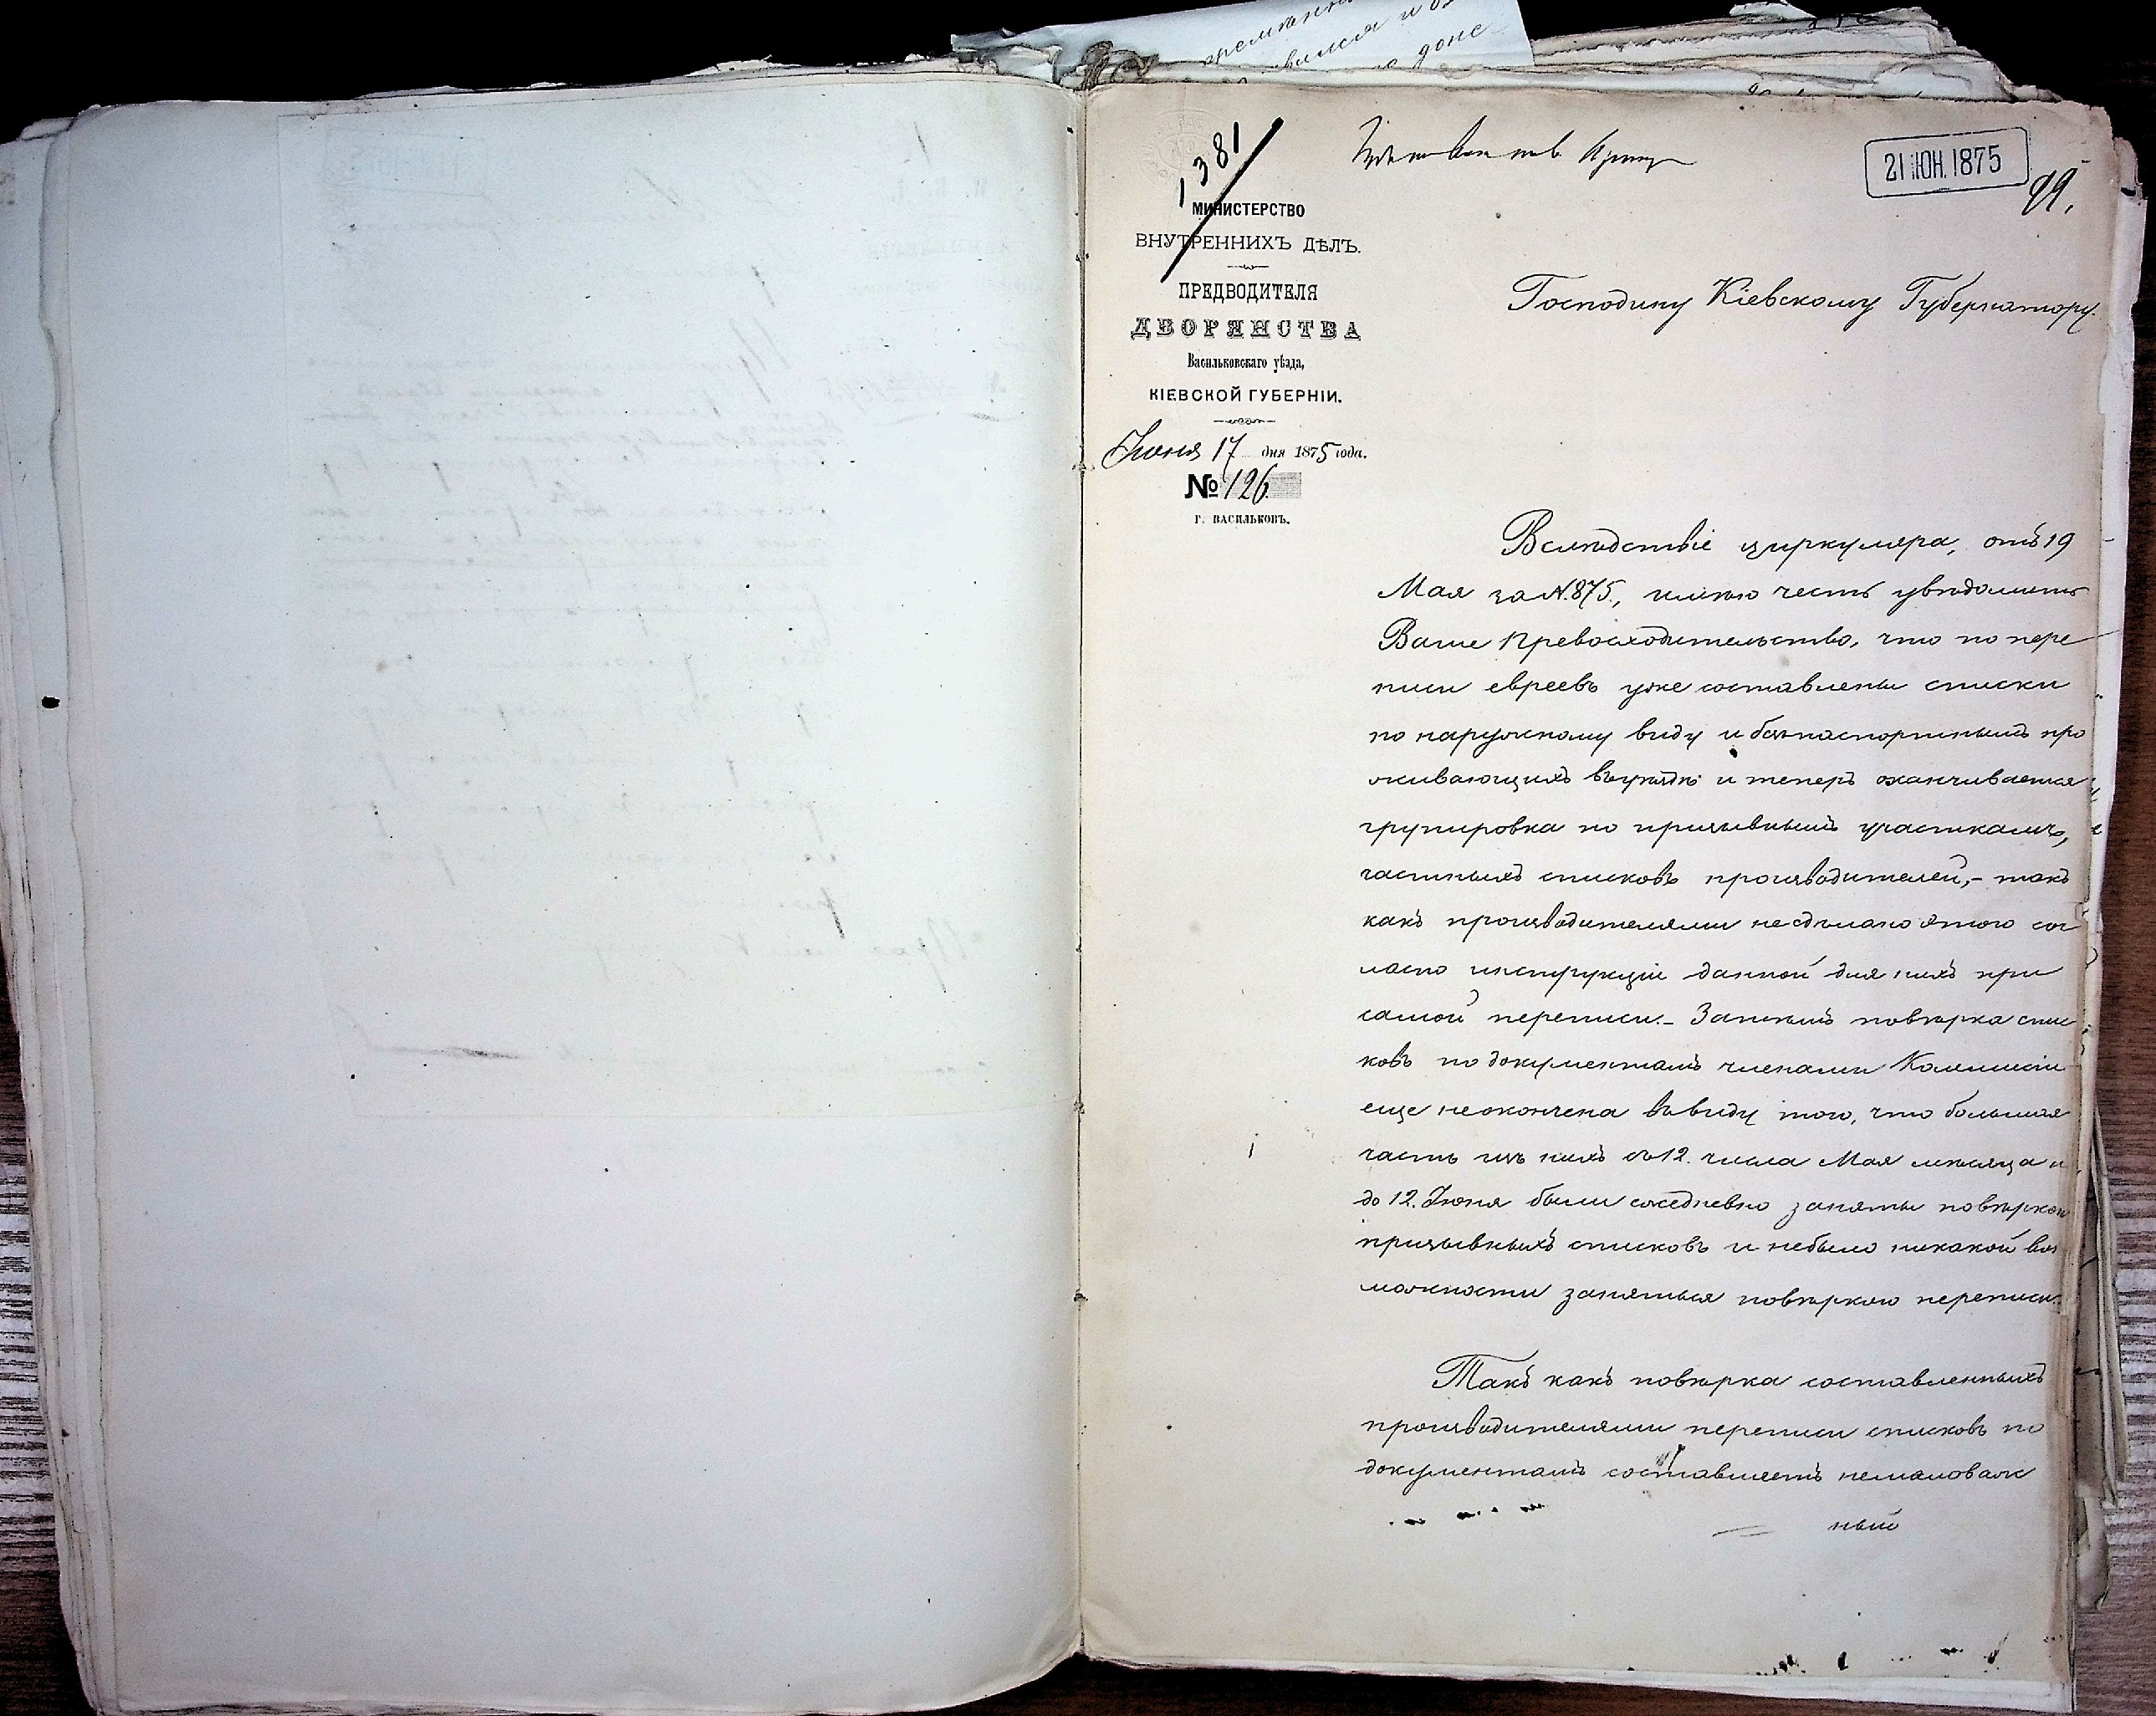 1381
21 ІЮН. 1875
99.
МИНИСТЕРСТВО
ВНУТРЕННИХЪ ДѢЛЪ.
ПРЕДВОДИТЕЛЯ
ДВОРЯНСТВА
Васильковскаго уѣзда,
КІЕВСКОЙ ГУБЕРНІИ.
Іюня 17 дня 1875 года.
№ 126
Г. ВАСИЛЬКОВЪ.
Господину Кіевскому Губернатору.
Вслѣдствіе циркуляра, отъ 19
Мая за N. 875, имѣю честь увѣдомить
Ваше Превосходительство, что по пере
писи евреевъ уже составлены списки
по наружному виду и безпаспортнымъ про
живающихъ въ уѣздѣ и теперь оканчивается
групировка по призывнымъ участкамъ,
частныхъ списковъ производителей,- такъ
какъ производителями не сдѣлано этого сог
ласно инструкціи данной для нихъ при
самой переписи.- Затѣмъ повѣрка спис
ковъ по документамъ членами Коммисіи
еще неокончена въ виду того, что большая
часть изъ нихъ съ 12. числа Мая мѣсяца и
до 12. Іюня были ежедневно заняты повѣркою
призывныхъ списковъ и небыло никакой воз
можности заняться повѣркою переписи.
Такъ какъ повѣрка составленныхъ
производителями переписи списковъ по
документамъ составляетъ немаловаж
ный